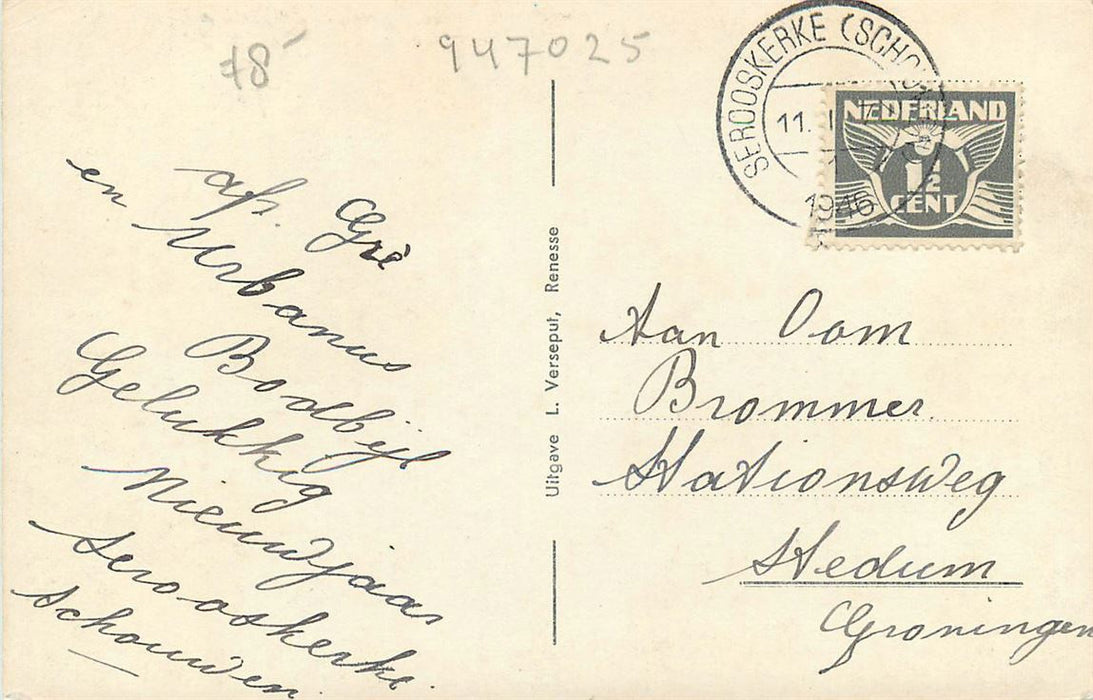 78'
947025
SEROOSKERKE (SCHO
11. I
1946
NEDERLAND
1½
CENT
afs. Grè
en Urbanus
Bodbijl
Gelukkig
Nieuwjaar
Serooskerke.
Schouwen.
Uitgave L. Verseput, Renesse
Aan Oom
Brommer.
Stationsweg
Stedum
Groningen